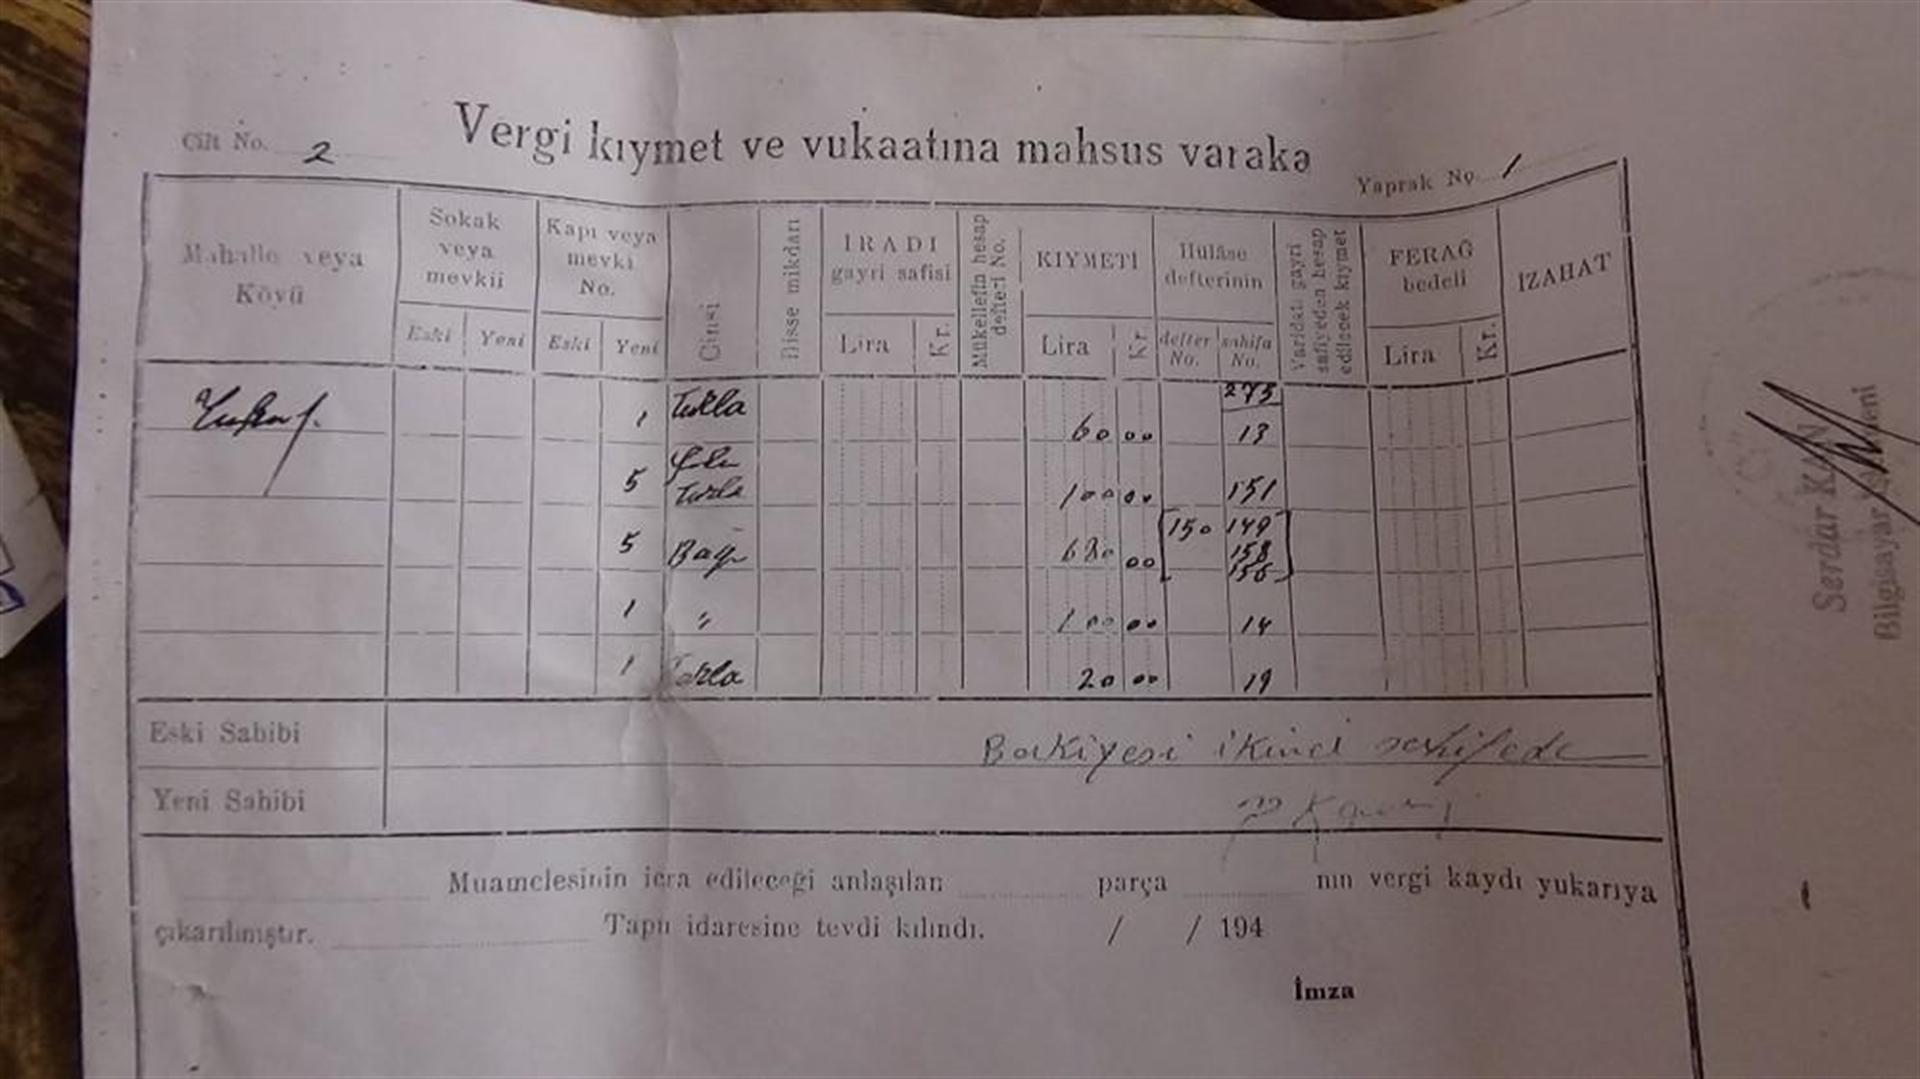 Vergi kıymet ve vukaatına mahsus varaka
Cilt No. 2
Yaprak No. 1
Mahalle veya Köyü
Sokak veya mevkii
Eski Yeni
Kapı veya mevki No.
Eski Yeni
Cinsi
Hisse mikdarı
İRADI gayri safisi
Lira Kr.
Mükellefin hesap defteri No.
KIYMETİ
Lira Kr.
Hülâse defterinin
defter No. sahifa No.
Varidatı gayri safiyeden hesap edilecek kıymet
FERAĞ bedeli
Lira Kr.
İZAHAT
273
1 Tarla 60 00 13
5 Tarla 100 00 151
5 Bağ 680 00 150 149
158
156
1 " 100 00 14
1 Tarla 20 00 19
Eski Sahibi
Bakiyesi ikinci sahifede
Yeni Sahibi
Muamelesinin icra edileceği anlaşılan parça nın vergi kaydı yukarıya
çıkarılmıştır. Tapu idaresine tevdi kılındı. / / 194
İmza
Serdar KAN
Bilgisayar